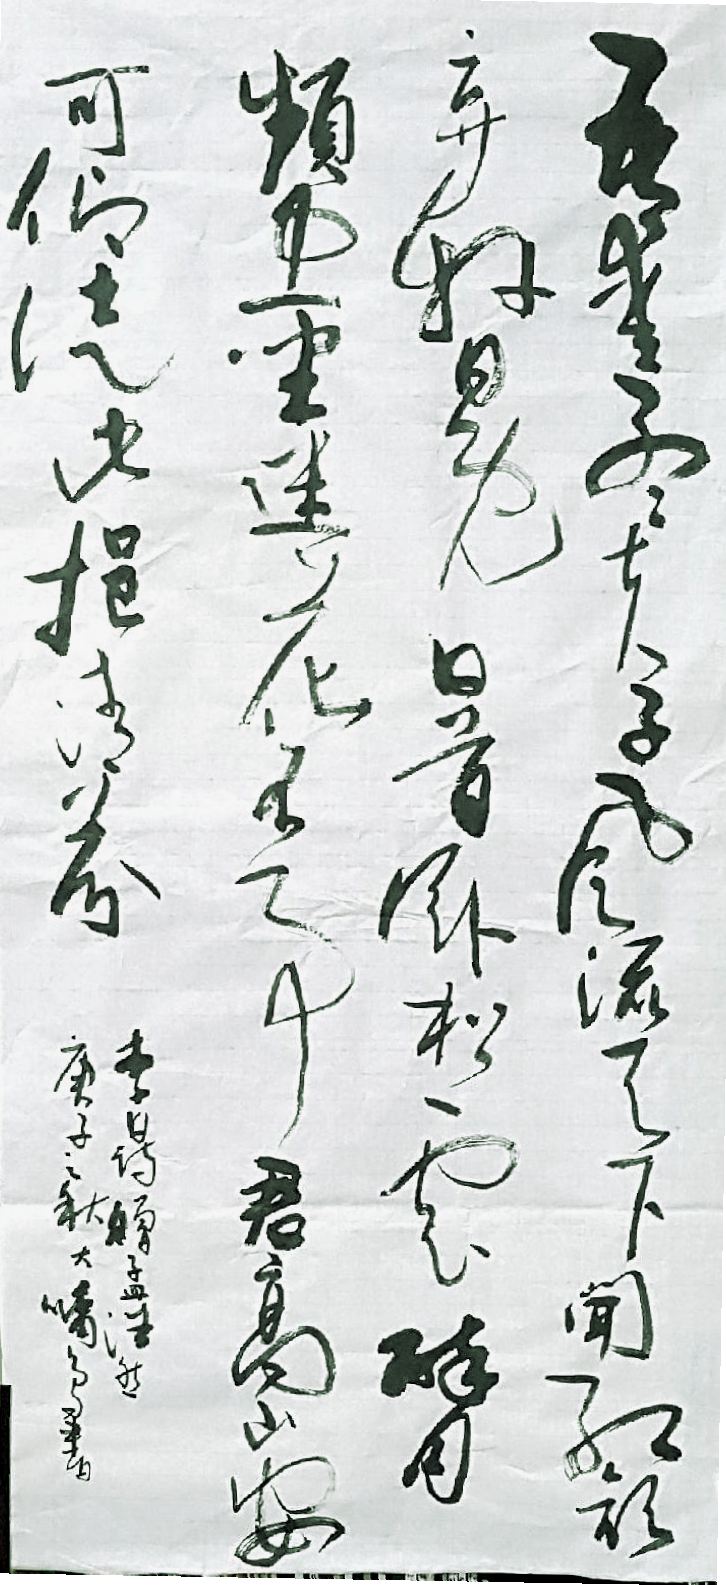 吾愛孟夫子風流天下聞紅顏
棄軒冕白首臥松雲醉月
頻中聖迷花不事君高山安
可仰徒此揖清芬
李白詩贈孟浩然
庚子之秋大